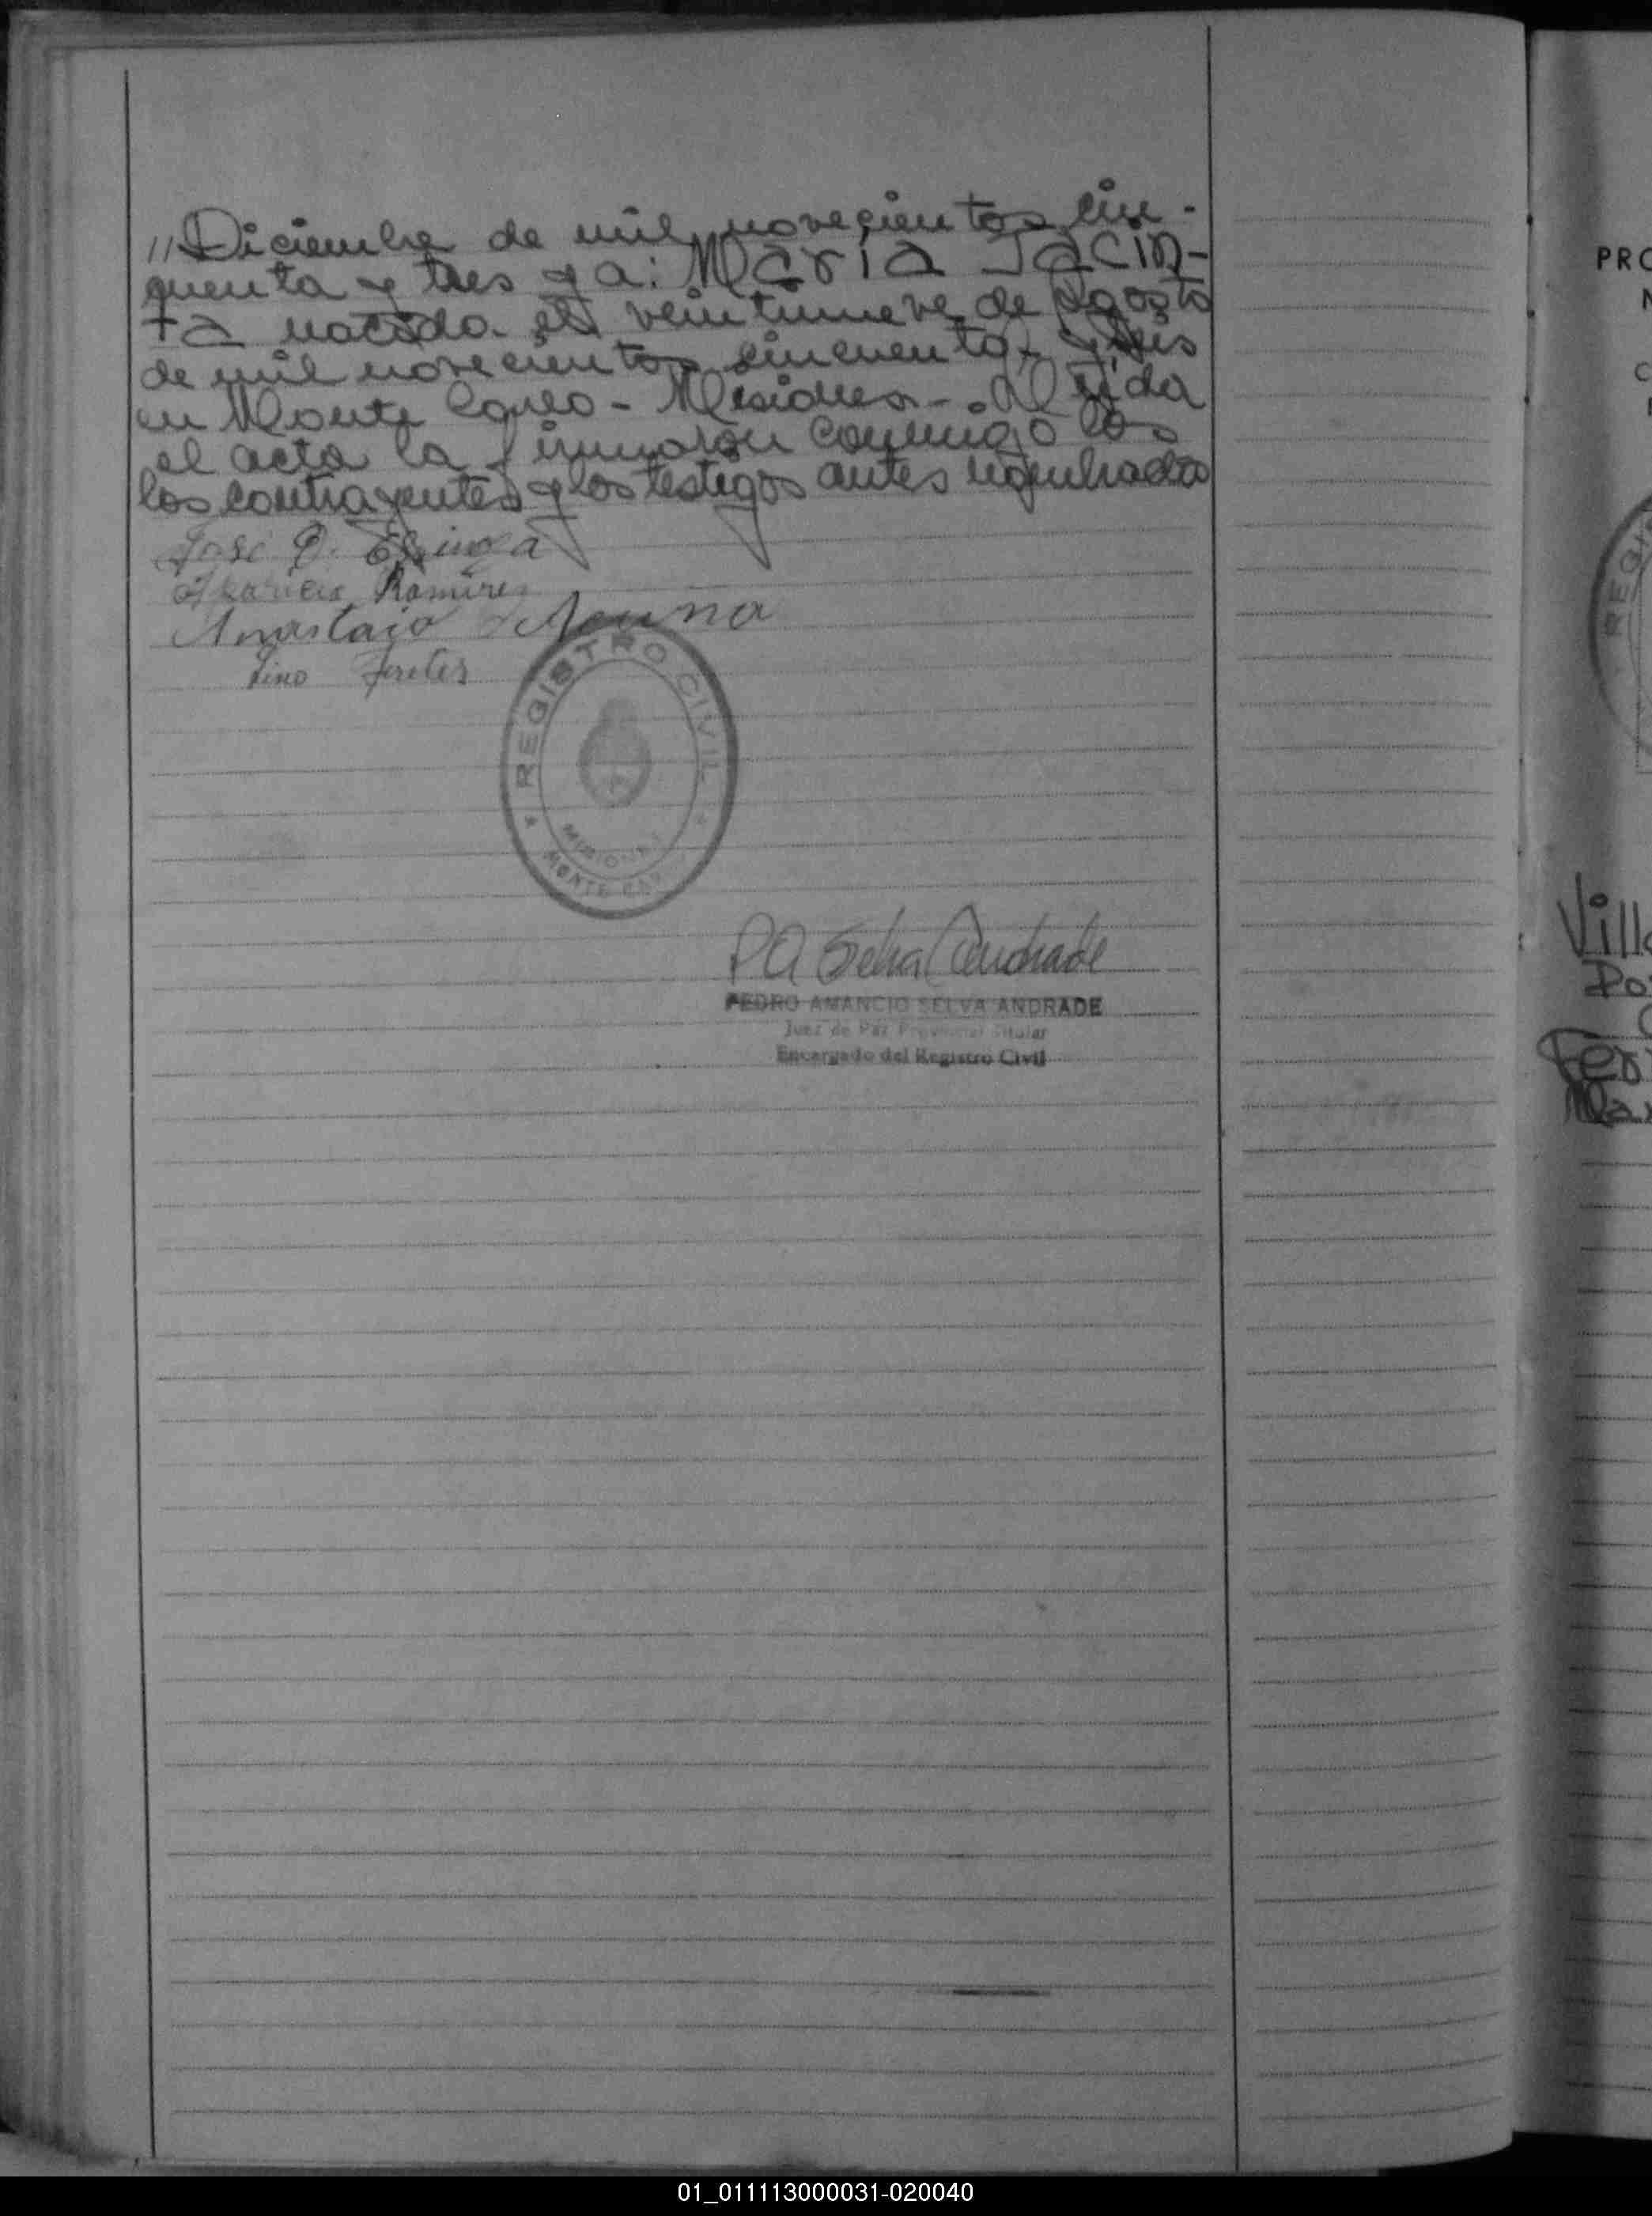 //Diciembre de mil novecientos cin-
quenta y tres y a: María Jacin-
ta nacida el veintinueve de Agosto
de mil novecientos cincuenta y seis
en Monte Carlo - Misiones -. Leída
el acta la firmaron conmigo los
los contrayentes y los testigos antes nombrados
José
Ramirez
Anastacio Acuña
Lino
REGISTRO CIVIL
MISIONES
MONTE
PA Selva Andrade
PEDRO AMANCIO SELVA ANDRADE
Juez de Paz Provincial Titular
Encargado del Registro Civil
PRO
Vill
Po
Fer
Ma
01_011113000031-020040